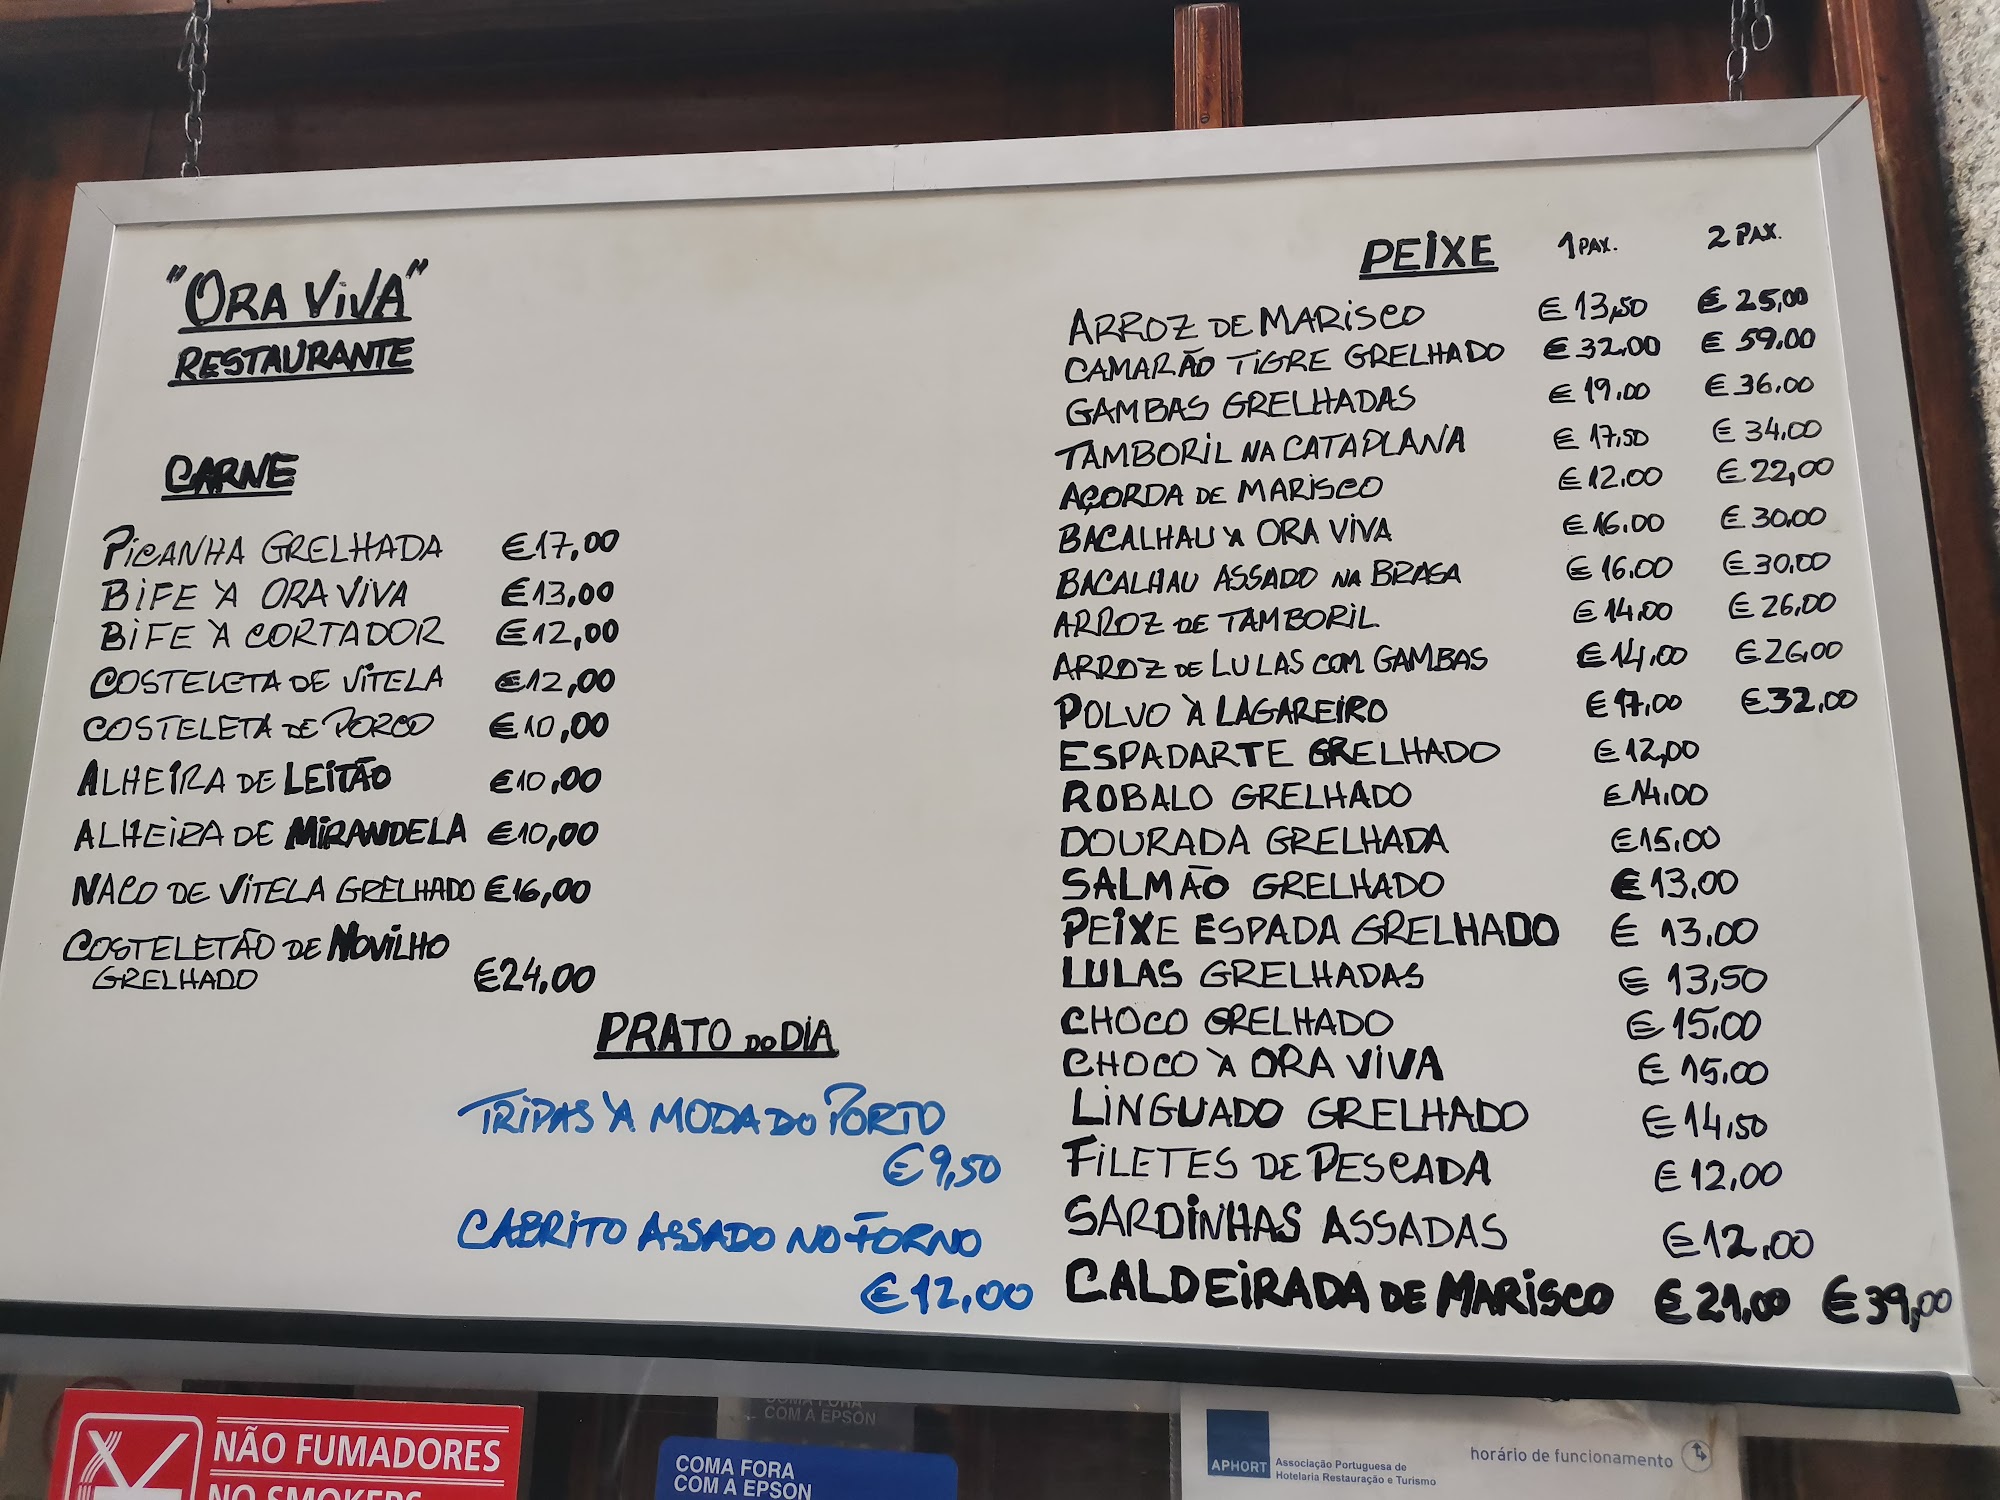 "ORA VIVA"
RESTAURANTE
CARNE
PICANHA GRELHADA €17,00
BIFE À ORA VIVA €13,00
BIFE À CORTADOR €12,00
COSTELETA DE VITELA €12,00
COSTELETA DE PORCO €10,00
ALHEIRA DE LEITÃO €10,00
ALHEIRA DE MIRANDELA €10,00
NACO DE VITELA GRELHADO €16,00
COSTELETÃO DE NOVILHO
GRELHADO €24,00
PRATO DO DIA
TRIPAS À MODA DO PORTO
€9,50
CABRITO ASSADO NO FORNO
€12.00
PEIXE 1 PAX. 2 PAX.
ARROZ DE MARISCO €13,50 €25,00
CAMARÃO TIGRE GRELHADO €32.00 €59.00
GAMBAS GRELHADAS €19.00 €36.00
TAMBORIL NA CATAPLANA €17,50 €34.00
AÇORDA DE MARISCO €12.00 €22,00
BACALHAU À ORA VIVA €16.00 €30.00
BACALHAU ASSADO NA BRASA €16.00 €30.00
ARROZ DE TAMBORIL €14.00 €26.00
ARROZ DE LULAS COM GAMBAS €14,00 €26.00
POLVO À LAGAREIRO €17,00 €32,00
ESPADARTE GRELHADO €12,00
ROBALO GRELHADO €14.00
DOURADA GRELHADA €15.00
SALMÃO GRELHADO €13,00
PEIXE ESPADA GRELHADO €13.00
LULAS GRELHADAS €13,50
CHOCO GRELHADO €15.00
CHOCO À ORA VIVA €15.00
LINGUADO GRELHADO €14,50
FILETES DE PESCADA €12,00
SARDINHAS ASSADAS €12.00
CALDEIRADA DE MARISCO €21,00 €39,00
NÃO FUMADORES
NO SMOKERS
COMA FORA
COM A EPSON
COMA FORA
COM A EPSON
APHORT
Associação Portuguesa de
Hotelaria Restauração e Turismo
horário de funcionamento